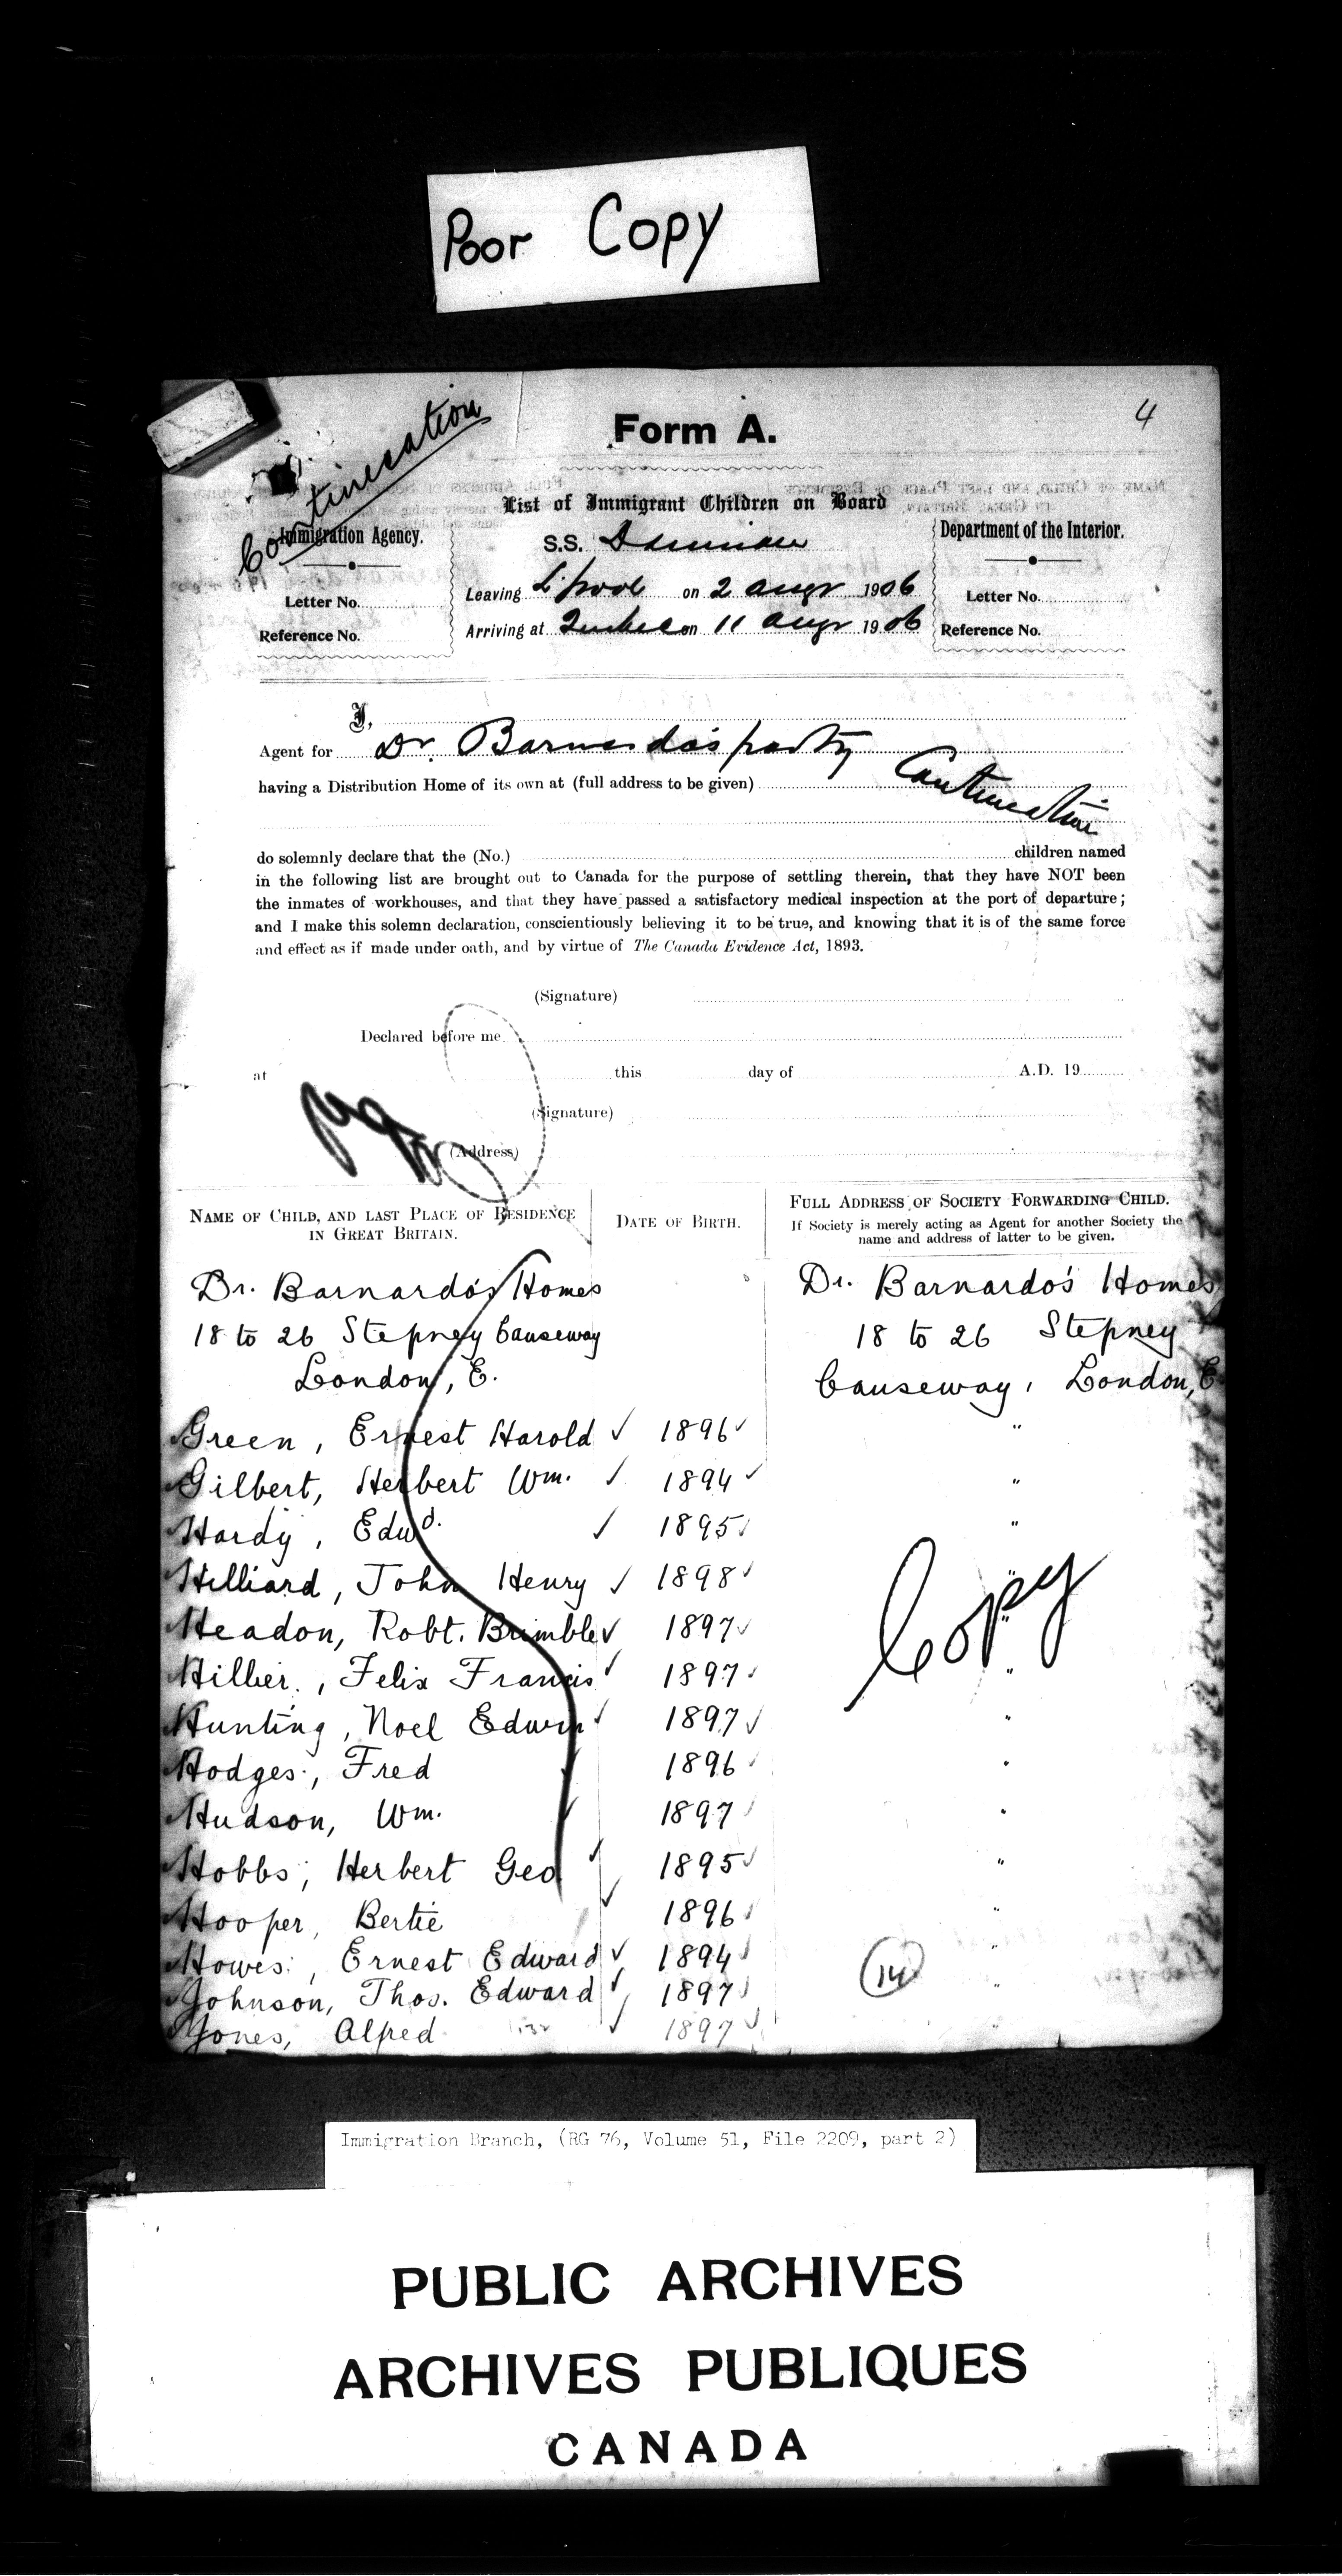 Poor Copy
4
Continuation
Form A.
List of Immigrant Children on Board
Immigration Agency.
S.S. Dominion
Department of the Interior.
Letter No.
Leaving L'pool on 2 augr 1906
Letter No.
Reference No.
Arriving at Quebec on 11 augr 1906
Reference No.
I,
Agent for Dr. Barnardo's party
having a Distribution Home of its own at (full address to be given) Continuation
do solemnly declare that the (No.) children named
in the following list are brought out to Canada for the purpose of settling therein, that they have NOT been
the inmates of workhouses, and that they have passed a satisfactory medical inspection at the port of departure;
and I make this solemn declaration, conscientiously believing it to be true, and knowing that it is of the same force
and effect as if made under oath, and by virtue of The Canada Evidence Act, 1893.
(Signature)
Declared before me
at this day of A.D. 19
(Signature)
(Address)
NAME OF CHILD, AND LAST PLACE OF RESIDENCE
IN GREAT BRITAIN.
DATE OF BIRTH.
FULL ADDRESS OF SOCIETY FORWARDING CHILD.
If Society is merely acting as Agent for another Society the
name and address of latter to be given.
Dr. Barnardo's Homes Dr. Barnardo's Homes
18 to 26 Stepney Causeway 18 to 26 Stepney
London, E. Causeway, London, E
Green, Ernest Harold ✓ 1896 ✓ "
Gilbert, Herbert Wm. ✓ 1894 ✓ "
Hardy, Edwd. ✓ 1895 ✓ "
Hilliard, John Henry ✓ 1898 ✓ "
Copy
Headon, Robt. Brimble ✓ 1897 ✓ "
Hillier, Felix Francis ✓ 1897 ✓ "
Hunting, Noel Edwin ✓ 1897 ✓ "
Hodges, Fred ✓ 1896 ✓ "
Hudson, Wm. ✓ 1897 ✓ "
Hobbs, Herbert Geo ✓ 1895 ✓ "
Hooper, Bertie ✓ 1896 ✓ "
Howes, Ernest Edward ✓ 1894 ✓ "
14
Johnson, Thos. Edward ✓ 1897 ✓ "
Jones, Alfred ✓ 1897 ✓ "
Immigration Branch, (RG 76, Volume 51, File 2209, part 2)
PUBLIC ARCHIVES
ARCHIVES PUBLIQUES
CANADA